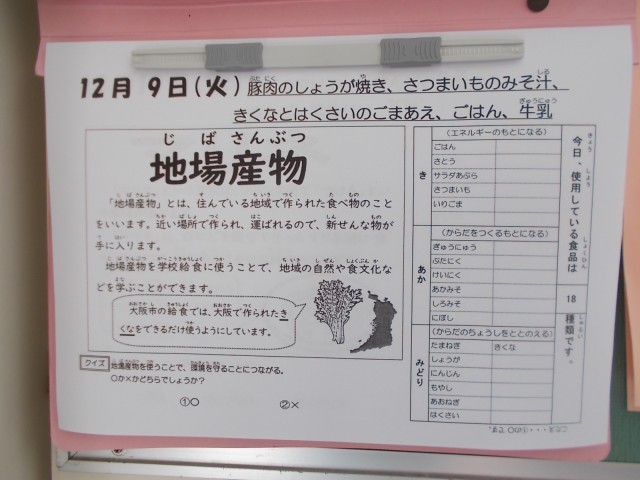 12月 9日(火) 豚肉のしょうが焼き、さつまいものみそ汁、
きくなとはくさいのごまあえ、ごはん、牛乳
じばさんぶつ
地場産物
「地場産物」とは、住んでいる地域で作られた食べ物のこと
をいいます。近い場所で作られ、運ばれるので、新せんな物が
手に入ります。
地場産物を学校給食に使うことで、地域の自然や食文化な
どを学ぶことができます。
大阪市の給食では、大阪で作られたき
くなをできるだけ使うようにしています。
クイズ 地場産物を使うことで、環境を守ることにつながる。
○か×かどちらでしょうか?
①○ ②×
今日、使用している食品は
18
種類です。
き
(エネルギーのもとになる)
ごはん
さとう
サラダあぶら
さつまいも
いりごま
あか
(からだをつくるもとになる)
ぎゅうにゅう
ぶたにく
けいにく
あかみそ
しろみそ
にぼし
みどり
(からだのちょうしをととのえる)
たまねぎ きくな
しょうが
にんじん
もやし
あおねぎ
はくさい